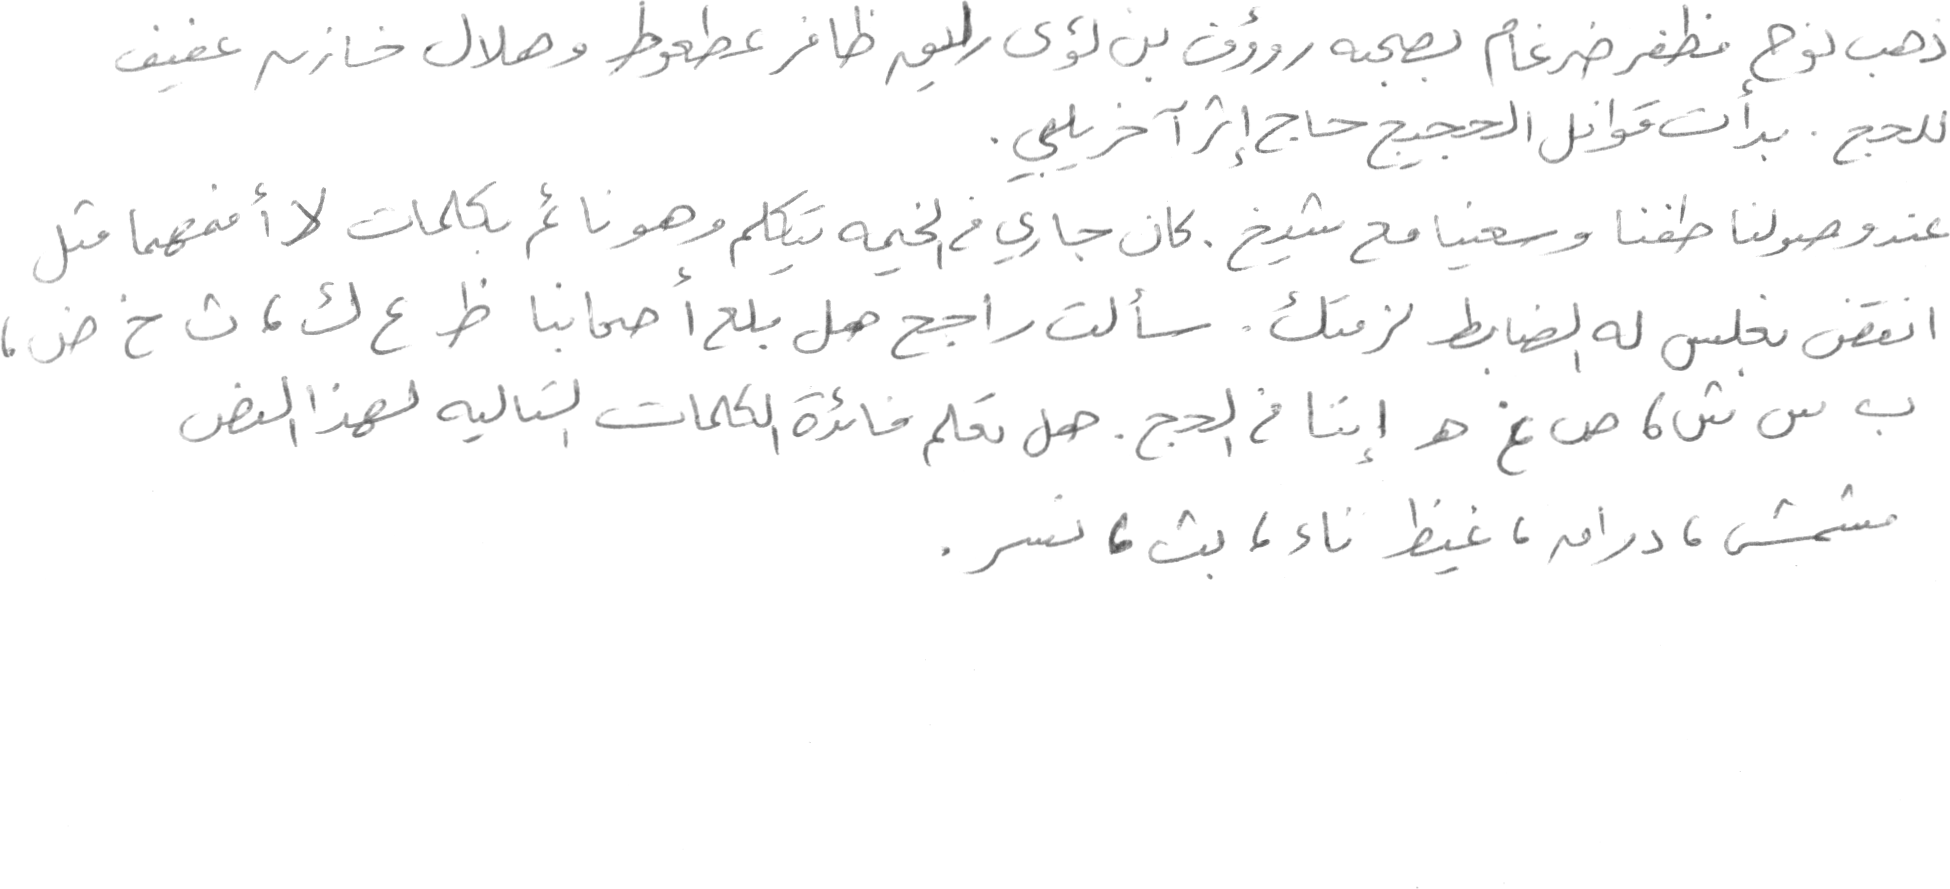 ذهب نوح مظفر ضرغام بصحبه رؤوف بن لؤى راليق ظافر عطعوط وهلال خازن عفيف
للحج . بدأت قوافل الحجيج حاج إثر آخر يلبي .
عند وصولنا طفنا وسعينا مع شيخ . كان جاري في الخيمه يتكلم وهو نائم بكلمات لا أفهمها مثل
انقض بغلس له الضابط لزمتك . سألت راجح هل بلع أصحابنا ظ ع ك ، ث خ ض ،
ب س ش ، ص غ هـ إبتنا في الحج . هل تعلم فائدة الكلمات التاليه لهذا النص
مشمش ، دراق ، غيظ ناء ، بث ، نسر .